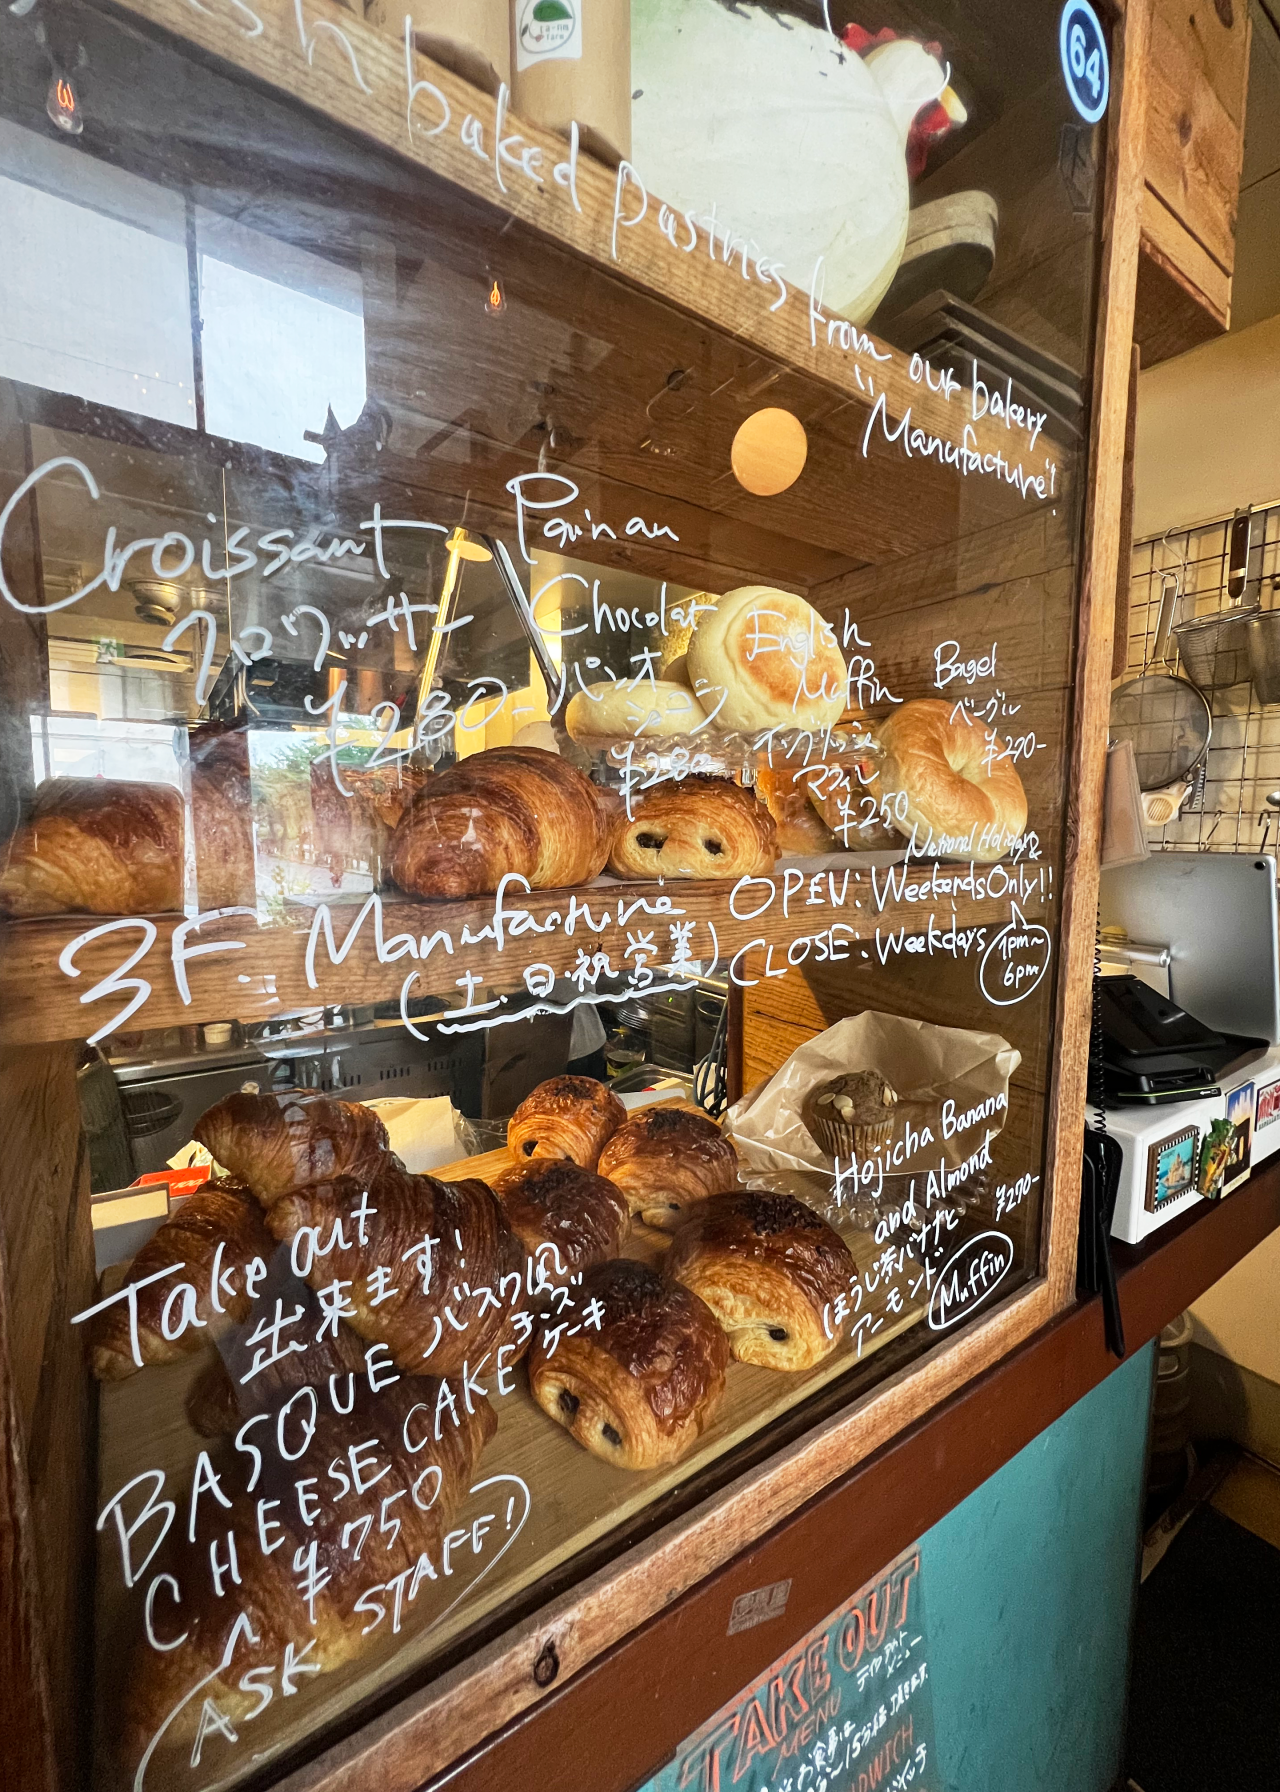 baked pastries from our bakery
"Manufacture"!
64
Croissant
クロワッサー
¥280-
Pain au
Chocolat
パンオ
ショコラ
¥280
English
Muffin
イングリッシュ
マフィン
¥250
Bagel
ベーグル
¥270-
3F: Manufacture
(土、日・祝営業)
National Holiday&
OPEN: Weekends Only!!
CLOSE: Weekdays
1pm~
6pm
Take out
出来ます!
BASQUE
CHEESE CAKE
バスク風
チーズ
ケーキ
¥750
ASK STAFF!
Hojicha Banana
and Almond
ほうじ茶バナナと
アーモンド
¥270-
Muffin
TAKE OUT
MENU
テイクアウト
メニュー
お食事は